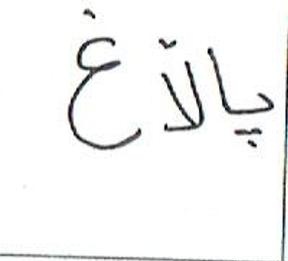 پاڵاغ